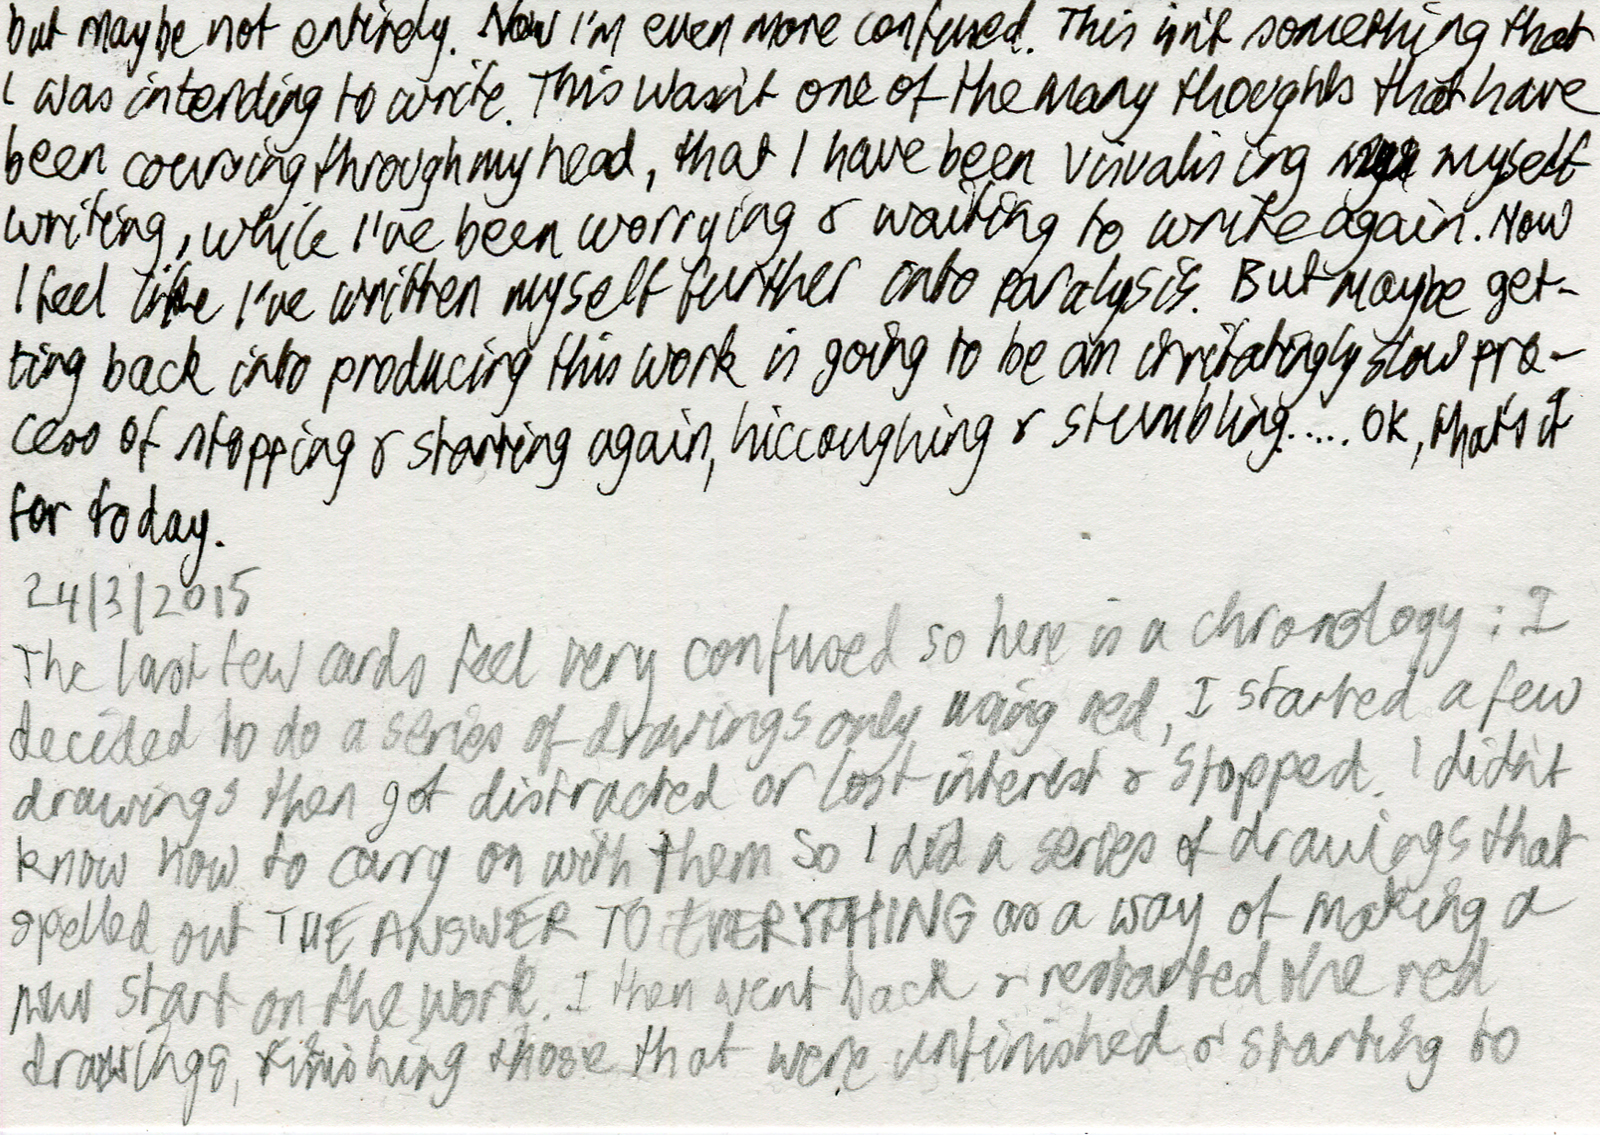 but maybe not entirely. Now I'm even more confused. This isn't something that
I was intending to write. This wasn't one of the many thoughts that have
been coursing through my head, that I have been visualising myself
writing, while I've been worrying & waiting to write again. Now
I feel like I've written myself further into paralysis. But maybe get-
ting back into producing this work is going to be an irritatingly slow pro-
cess of stopping & starting again, hiccoughing & stumbling..... OK, that's it
for today.
24/3/2015
The last few cards feel very confused so here is a chronology: I
decided to do a series of drawings only using red, I started a few
drawings then got distracted or lost interest & stopped. I didn't
know how to carry on with them so I did a series of drawings that
spelled out THE ANSWER TO EVERYTHING as a way of making a
new start on the work. I then went back & restarted the red
drawings, finishing those that were unfinished & starting to